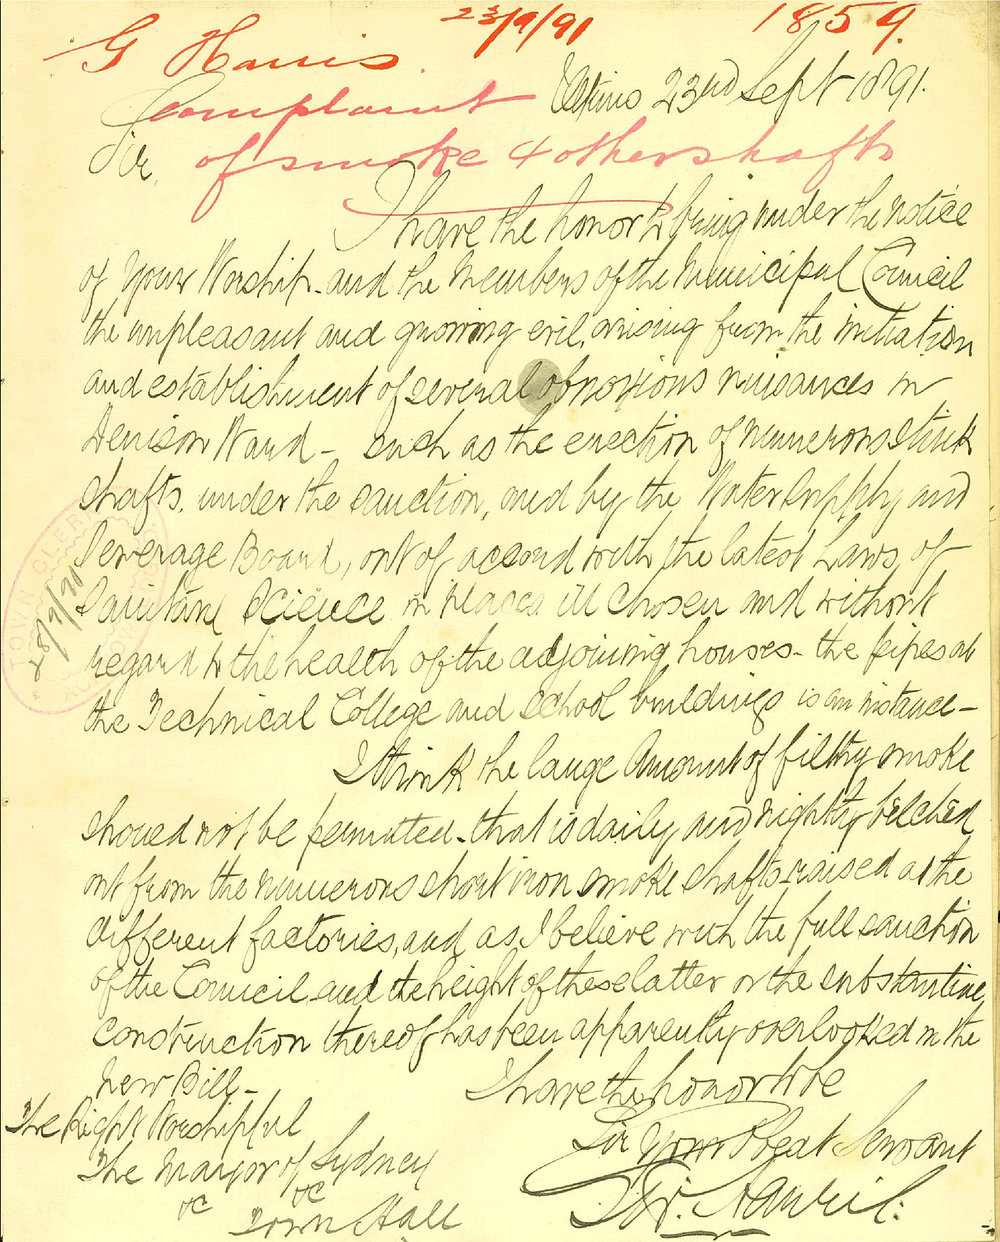 23/9/91
1859.
G Harris
Complaint
of smoke & other shafts
Ultimo 23rd Sept 1891.
Sir,
I have the honor to bring under the notice
of Your Worship and the Members of the Municipal Council
the unpleasant and growing evil, arising from the initiation
and establishment of several obnoxious nuisances in
Denison Ward - such as the erection of numerous stink
shafts, under the sanction, and by the Water Supply and
Sewerage Board, out of accord with the latest Laws of
Sanitary Science in places ill chosen and without
regard to the health of the adjoining houses - the pipes at
the Technical College and School buildings is an instance -
I think the large amount of filthy smoke
should not be permitted - that is daily and nightly belched
out from the numerous short iron smoke shafts - raised at the
different factories, and as I believe with the full sanction
of the Council and the height of these latter or the substantive
construction thereof has been apparently overlooked in the
New Bill -
I have the honor to be
Sir Your Obeat Servant
The Right Worshipful
The Mayor of Sydney
&c &c
Town Hall
TOWN CLERK
28/9/91